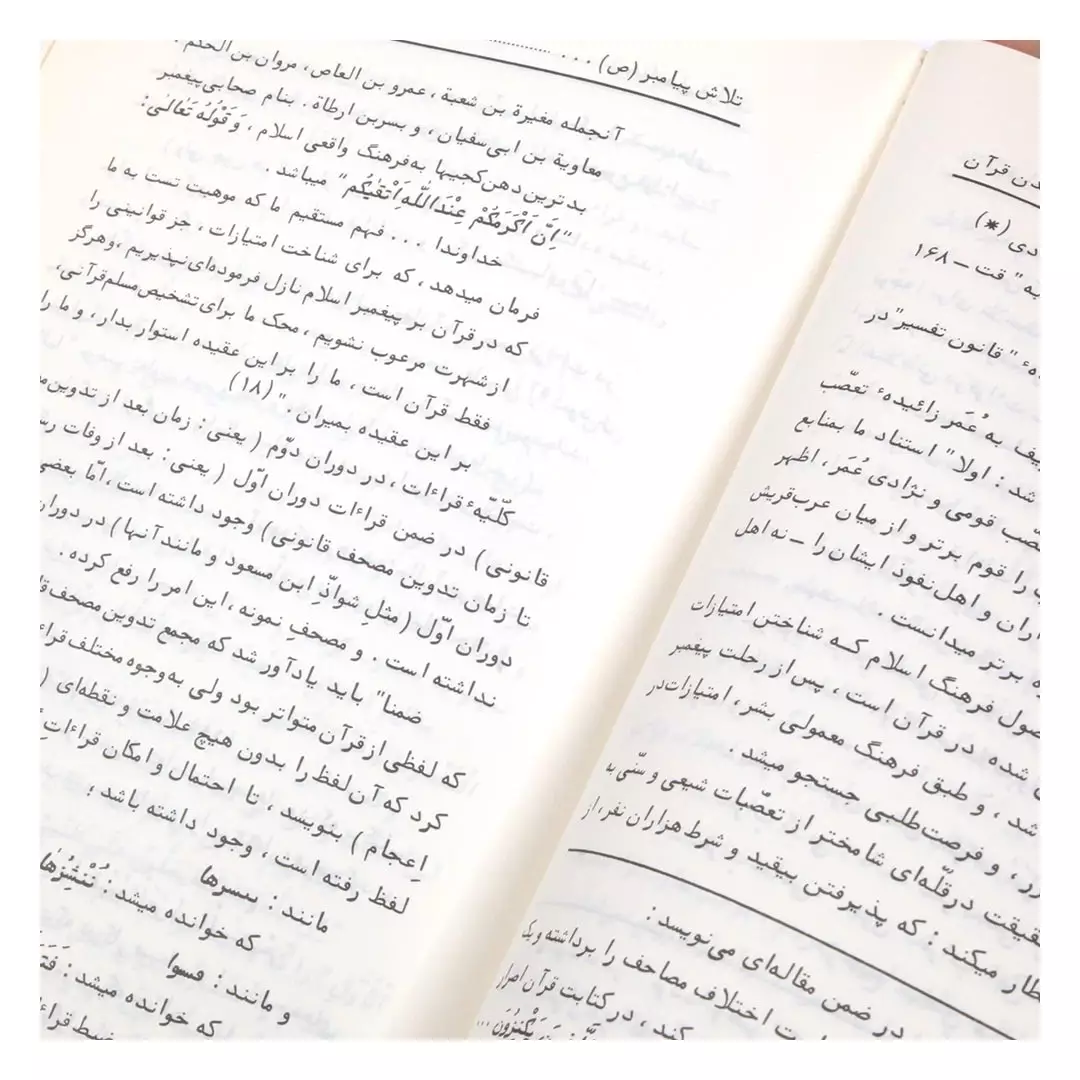 دن قرآن
دی (*)
به" قت – ۱۶۸
هٔ " قانون تفسیر" در
یف به عُمَر زائیدهٔ تعصّب
شد : اولا" استناد ما بمنابع
صّب قومی و نژادی عُمَر ، اظهر
را قوم برتر و از میان عرب‌قریش
اران و اهل‌نفوذ ایشان را – نه اهل
ه برتر میدانست .
صول فرهنگ اسلام کـه شناختن امتیازات
شده در قرآن است ، پس از رحلت پیغمبر
شد ، و طبق فرهنگ معمولی بشر ، امتیازات‌در
رر ، و فرصت‌طلبی جستجو میشد .
قیقت درقلّه‌ای شامختر از تعصّبات شیعی و سنّی به
ظار میکند : که پذیرفتن بیقید و شرط هزاران نفر، از
در ضمن مقاله‌ای می‌نویسد :
ت اختلاف مصاحف را برداشته و یک
کند ، در کتابت قرآن اصرار
یَکْنِزُونَ ...
تلاش پیامبر (ص) . . .
آنجمله مغیرة بن شعبة ، عمرو بن العاص ، مروان بن الحکم ،
معاویة بن ابی‌سفیان ، و بسربن ارطاة . بنام صحابی‌پیغمبر
بدترین دهن‌کجیها به‌فرهنگ واقعی اسلام ، وَ قَوْلُهُ تَعَالیٰ :
"اِنَّ اَکْرَمَکُمْ عِنْدَاللّهِ اَتْقیٰکُم" میباشد .
خداوندا . . . فهم مستقیم ما که موهبت تست به ما
فرمان میدهد ، که برای شناخت امتیازات ، جز قوانینی را
که درقرآن بر پیغمبر اسلام نازل فرموده‌ای‌نپذیریم ، وهرگز
ازشهرت مرعوب نشویم ، محک ما برای تشخیص‌مسلم‌قرآنی،
فقط قرآن است ، ما را بر این عقیده استوار بدار ، و ما را
بر این عقیده بمیران . " (۱۸)
کلّیهٔ قراءات ، در دوران دوّم ( یعنی : زمان بعد از تدوین
قانونی ) در ضمن قراءات دوران اوّل ( یعنی : بعد از وفات
تا زمان تدوین مصحف قانونی ) وجود داشته است ، امّا بعضی
دوران اوّل ( مثلِ شواذّ ابن مسعود و مانند آنها ) در دوران
نداشته است . و مصحفِ نمونه ، این امر را رفع کرده .
ضمنا" باید یادآور شد که مجمع تدوین مصحف
که لفظی از قرآن متواتر بود ولی به‌وجوه مختلف
کرد که آن‌لفظ را بدون هیچ علامت و نقطه‌ای (
اِعجام ) بنویسد ، تا احتمال و امکان قراءاتِ
لفظ رفته است ، وجود داشته باشد ؛
مانند :
که خوانده میشد : نُنْشِزُهَا
و مانند :
که خوانده میشد :
ضبط